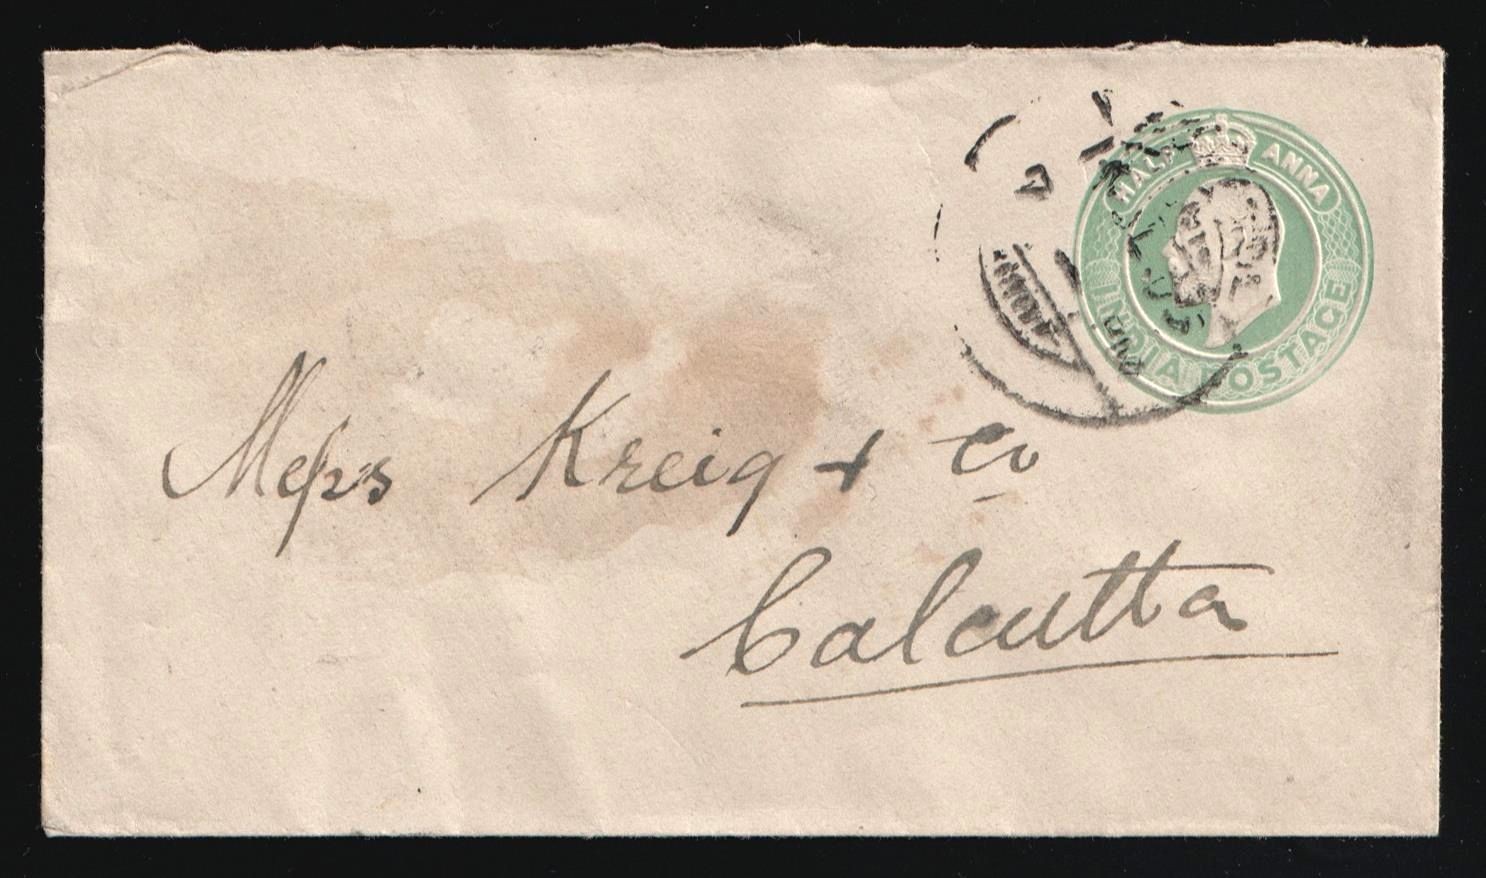 HALF ANNA
INDIA POSTAGE
Messrs Kreig + Co
Calcutta